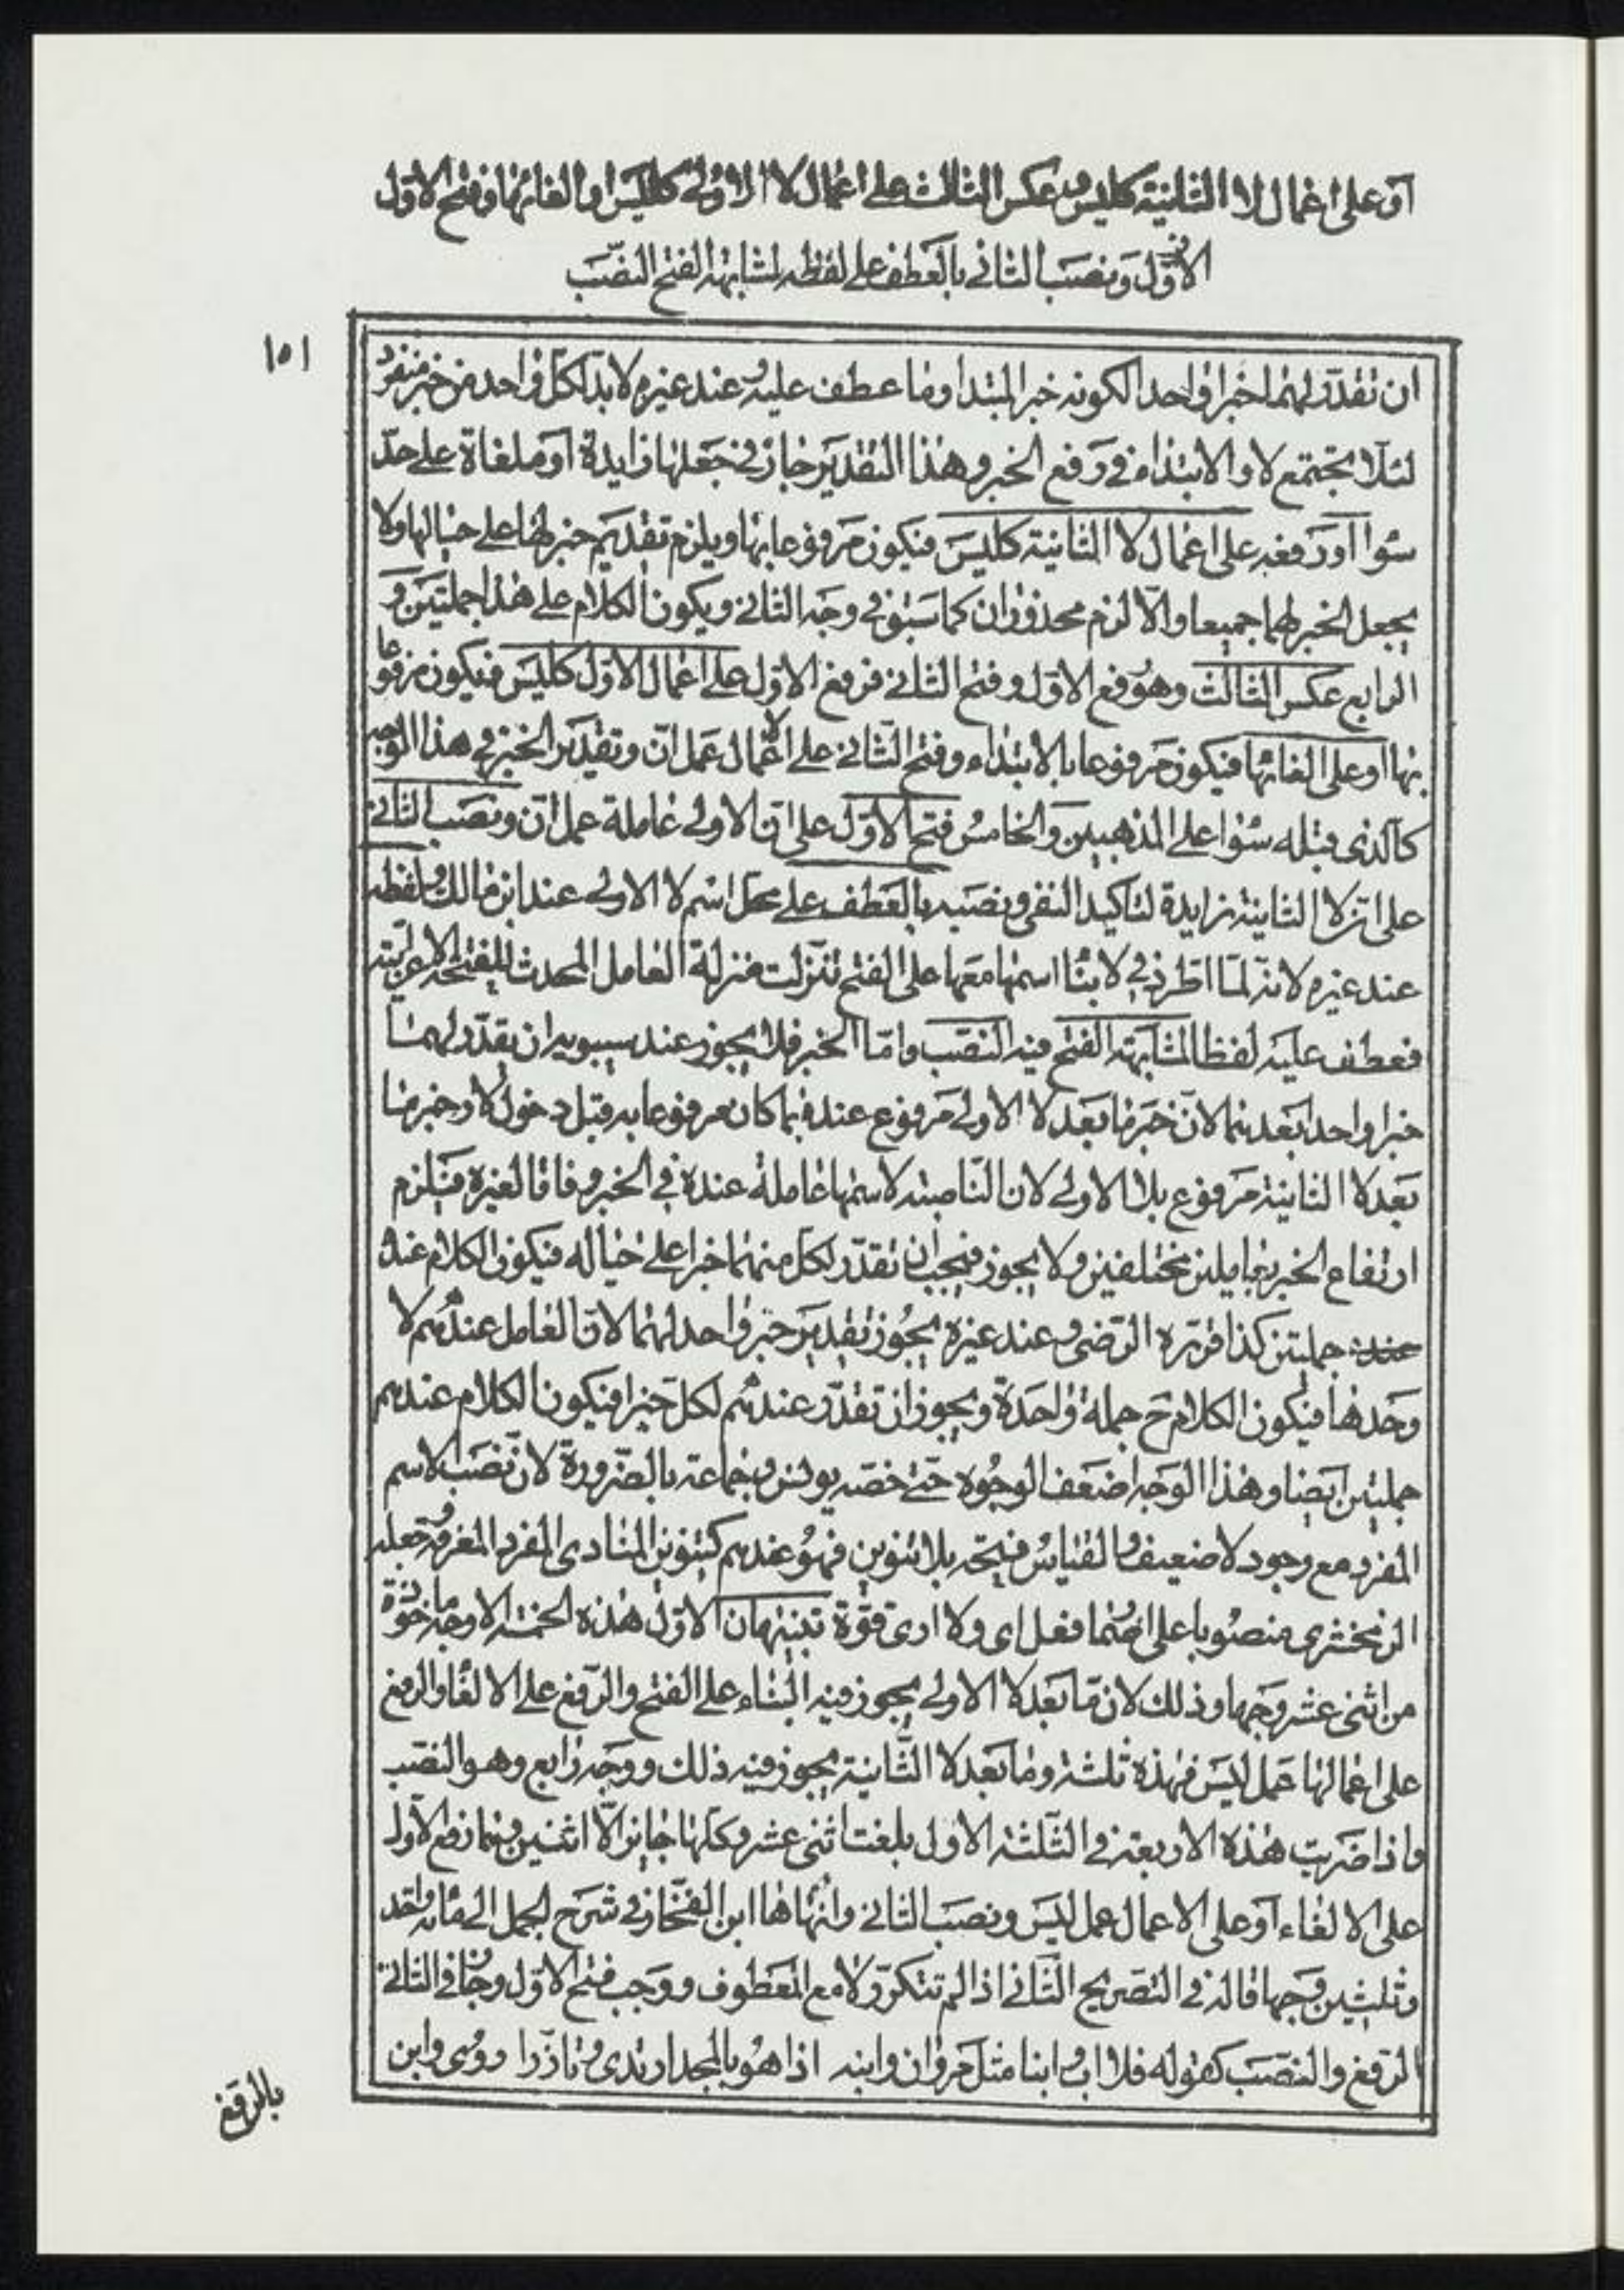 أو على اعمال لا الثانية كليس وعكس الثالث على اعمال لا الاولى كليس او الغائها وفتح الاول
الاول ونصب الثاني بالعطف على لفظه لمشابهة الفتح النصب
١٥١
ان تقدر لهما خبرا واحدا لكونه خبر المبتدا وما عطف عليه وعند غيره لا بد لكل واحد من خبر منفرد
لئلا تجتمع لا والابتداء في رفع الخبر وهذا التقدير جاز في جعلها زايدة او ملغاة على حد
سوا او رفعه على اعمال لا الثانية كليس فيكون مرفوعا بها ويلزم تقديم خبر لها على حيالها ولا
يجعل الخبر لهما جميعا والا لزم محذوران كما سبق في وجه الثاني ويكون الكلام على هذا جملتين و
الرابع عكس الثالث وهو رفع الاول وفتح الثاني فرفع الاول على اعمال الاول كليس فيكون مرفوعا
بها او على الغائها فيكون مرفوعا بالابتداء وفتح الثاني على لا عمال عمل ان وتقدير الخبر في هذا الوجه
كالذي قبله سوا على المذهبين والخامس فتح الاول على ان الاولى عاملة عمل ان ونصب الثاني
على ان لا الثانية زايدة لتاكيد النفي ونصبه بالعطف على محل اسم لا الاولى عند ابن مالك ولفظه
عند غيره لانه لما اطرد في لا بنا اسمها معها على الفتح تنزلت منزلة العامل المحدث للفتحة الاعرابية
فعطف عليه لفظا لمشابهة الفتح فيه النصب واما الخبر فلا يجوز عند سيبويه ان يقدر لهما
خبرا واحدا بعدهما لان خبر ما بعد لا الاولى مرفوع عنده بما كان مرفوعا به قبل دخول لا وخبر ما
بعد لا الثانية مرفوع بلا الاولى لان الناصبة لاسمها عاملة عنده في الخبر وفاقا لغيره فيلزم
ارتفاع الخبر بعاملين مختلفين ولا يجوز فيجب ان تقدر لكل منهما خبرا على حياله فيكون الكلام عنده
عنده جملتين كذا قرره الرضي وعند غيره يجوز تقدير خبر واحد لهما لان العامل عندهم لا
وحدها فيكون الكلام ح جملة واحدة ويجوز ان تقدر عندهم لكل خبرا فيكون الكلام عندهم
جملتين ايضا وهذا الوجه اضعف الوجوه حتى خصه يونس وجماعة بالضرورة لان نصب الاسم
المفرد مع وجود لا ضعيف والقياس فتحه بلا تنوين فهو عندهم كتنوين المنادى المفرد المعرفة وجعله
الزمخشري منصوبا على اضما فعل اي ولا ارى قوة تنبيهان الاول هذه الخمسة الاوجه ماخوذة
من اثنى عشر وجها وذلك لان ما بعد لا الاولى يجوز فيه البناء على الفتح والرفع على الالغا والرفع
على اعمالها عمل ليس فهذه ثلثة وما بعد لا الثانية يجوز فيه ذلك ووجه رابع وهو النصب
واذا ضربت هذه الاربعة في الثلثة الاول بلغت اثنى عشر وكلها جايز الا اثنين وهما رفع الاول
على الالغاء او على الاعمال عمل ليس ونصب الثاني وانهاها ابن الفخار في شرح الجمل الى مائة واحد
وثلثين وجها قاله في التصريح الثاني اذا لم تتكرر لا مع المعطوف ووجب فتح الاول وجاز في الثاني
الرفع والنصب كقوله فلا اب وابنا مثل مروان وابنه اذا هو بالمجد ارتدى وتازرا وروي وابن
بالرفع